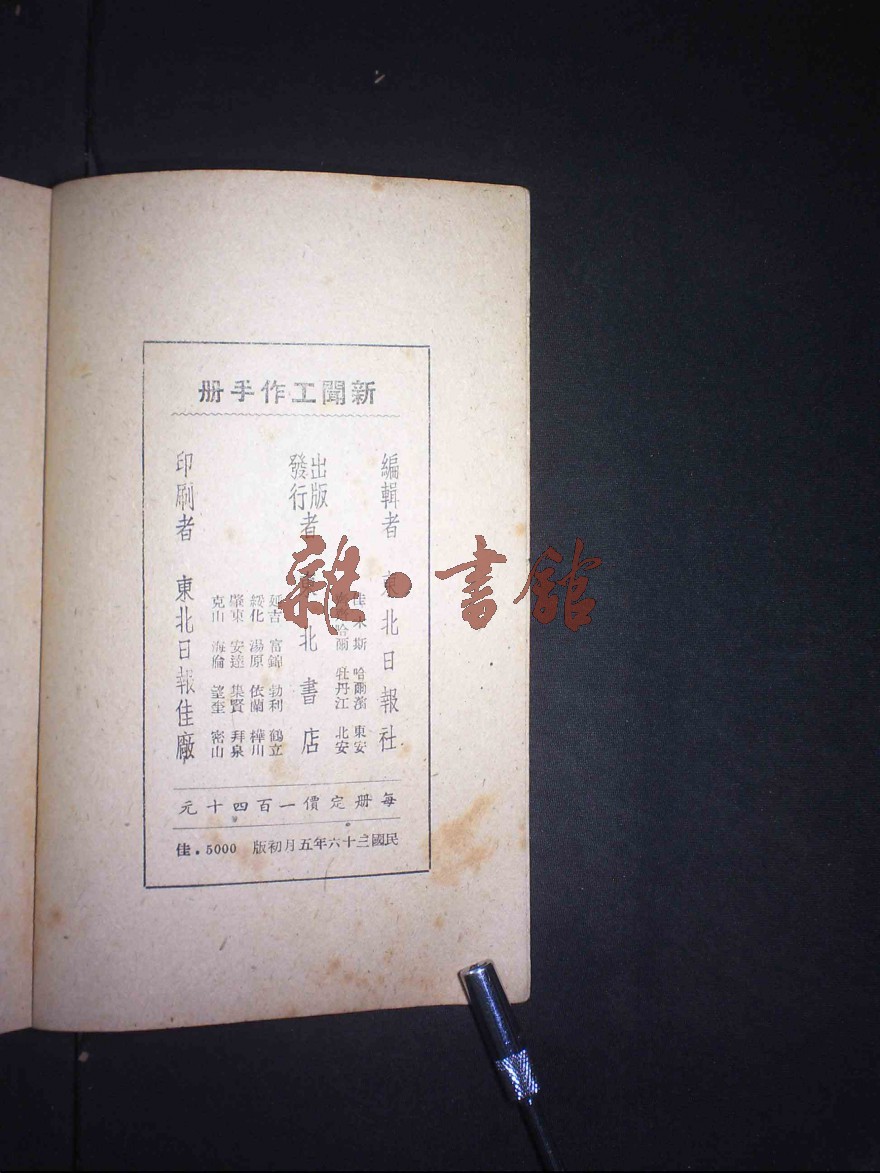 新聞工作手册
編輯者 東北日報社
佳木斯 哈爾濱 東安
齊齊哈爾 牡丹江 北安
出版
發行者 東北書店
延吉 富錦 勃利 鶴立
綏化 湯原 依蘭 樺川
肇東 安達 集賢 拜泉
克山 海倫 望奎 密山
印刷者 東北日報佳廠
每册定價一百四十元
民國三十六年五月初版 5000.佳
雜·書館